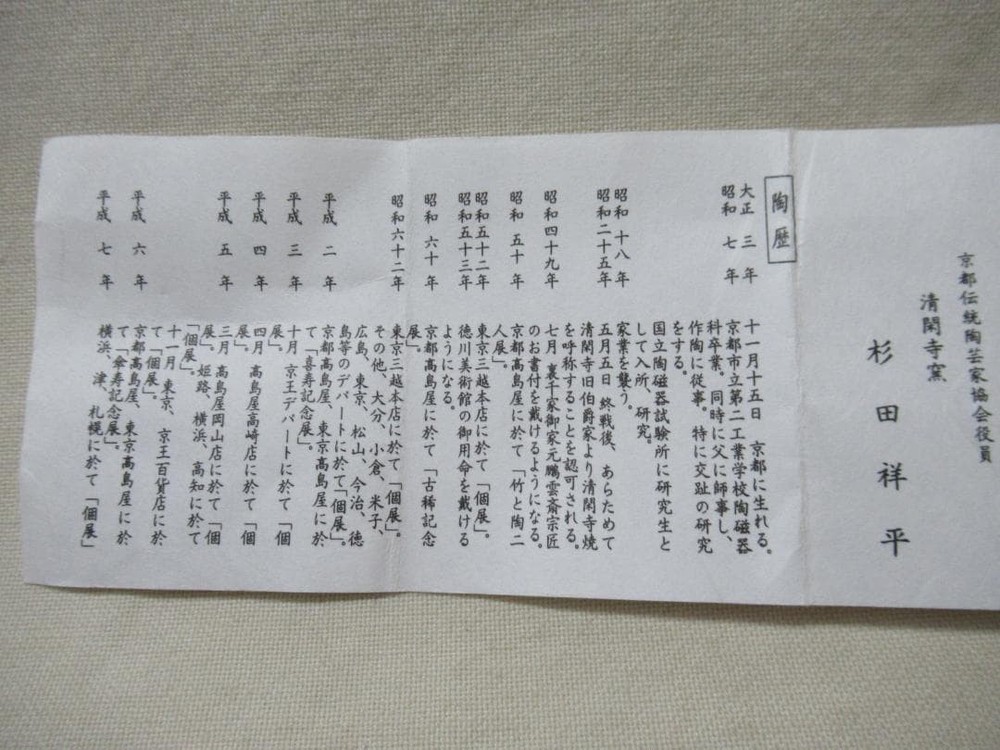 京都伝統陶芸家協会役員
清閑寺窯
杉田祥平
陶歴
大正 三 年 十一月十五日 京都に生れる。
昭和 七 年 京都市立第二工業学校陶磁器
科卒業。同時に父に師事し、
作陶に従事。特に交趾の研究
をする。
昭和 十八 年 国立陶磁器試験所に研究生と
して入所、研究。
家業を襲う。
昭和二十五年 五月五日 終戦後、あらためて
清閑寺旧伯爵家より清閑寺焼
を呼称することを認可される。
昭和四十九年 七月 裏千家御家元鵬雲斎宗匠
のお書付を戴けるようになる。
昭和 五十 年 京都髙島屋に於て「竹と陶二
人展」。
昭和五十二年 東京三越本店に於て「個展」。
昭和五十三年 徳川美術館の御用命を戴ける
ようになる。
昭和 六十 年 京都髙島屋に於て「古稀記念
展」。
昭和六十二年 東京三越本店に於て「個展」。
その他、大分、小倉、米子、
広島、東京、松山、今治、徳
島等のデパートに於て「個展」。
平成 二 年 京都髙島屋、東京髙島屋に於
て「喜寿記念展」。
平成 三 年 十月 京王デパートに於て「個
展」。
平成 四 年 四月 髙島屋高崎店に於て「個
展」。
平成 五 年 三月 髙島屋岡山店に於て「個
展」。姫路、横浜、高知に於て
「個展」。
十一月 東京、京王百貨店に於
て「個展」。
平成 六 年 京都髙島屋、東京髙島屋に於
て「傘寿記念展」。
平成 七 年 横浜、津、札幌に於て「個展」